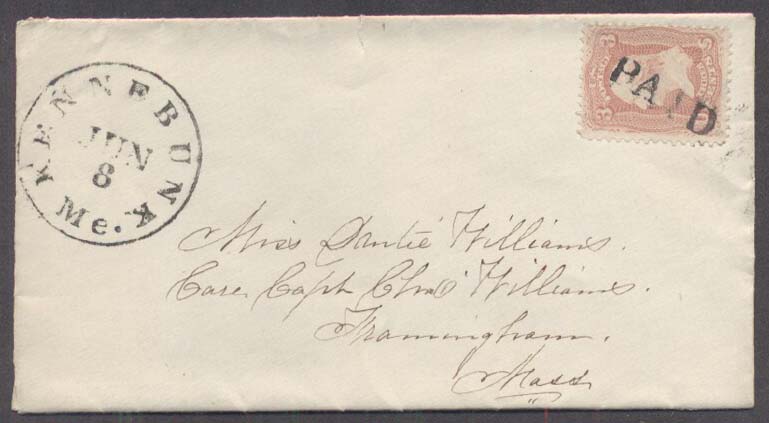 KENNEBUNK
JUN
8
Me.
3 3
PAID
Miss Dantié Williams.
Care Capt Chas Williams.
Framingham.
Mass